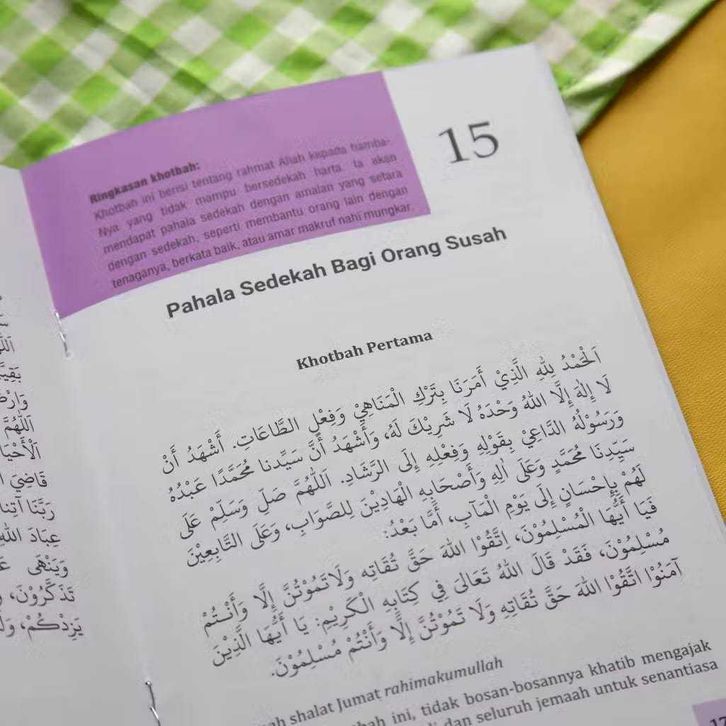 15
Ringkasan khotbah:
Khotbah ini berisi tentang rahmat Allah kepada hamba-
Nya yang tidak mampu bersedekah harta. Ia akan
mendapat pahala sedekah dengan amalan yang setara
dengan sedekah, seperti membantu orang lain dengan
tenaganya, berkata baik, atau amar makruf nahi mungkar.
Pahala Sedekah Bagi Orang Susah
Khotbah Pertama
اَلْحَمْدُ لِلهِ الَّذِيْ أَمَرَنَا بِتَرْكِ الْمَنَاهِيْ وَفِعْلِ الطَّاعَاتِ. أَشْهَدُ أَنْ
لَا إِلهَ إِلَّا اللهُ وَحْدَهُ لَا شَرِيْكَ لَهُ، وَأَشْهَدُ أَنَّ سَيِّدنَا مُحَمَّدًا عَبْدُهُ
وَرَسُوْلُهُ الدَّاعِيْ بِقَوْلِهِ وَفِعْلِهِ إِلَى الرَّشَادِ. اَللّٰهُمَّ صَلِّ وَسَلِّمْ عَلَى
سَيِّدِنَا مُحَمَّدٍ وَعَلَى آلِهِ وَأَصْحَابِهِ الْهَادِيْنَ لِلصَّوَابِ، وَعَلَى التَّابِعِيْنَ
لَهُمْ بِإِحْسَانٍ إِلَى يَوْمِ الْمَآبِ، أَمَّا بَعْدُ:
فَيَا أَيُّهَا الْمُسْلِمُوْنَ، اِتَّقُوْا اللهَ حَقَّ تُقَاتِه وَلَاتَمُوْتُنَّ إِلَّا وَأَنْتُمْ
مُسْلِمُوْنَ، فَقَدْ قَالَ اللهُ تَعَالَى فِي كِتَابِهِ الْكَرِيْمِ: يَا أَيُّهَا الَّذِيْنَ
آمَنُوْا اتَّقُوْا اللهَ حَقَّ تُقَاتِهِ وَلَا تَمُوْتُنَّ إِلَّا وَأَنْتُمْ مُسْلِمُوْنَ.
shalat Jumat rahimakumullah
ini, tidak bosan-bosannya khatib mengajak
dan seluruh jemaah untuk senantiasa
اَللّٰهُمَّ
قَاضِيَ
رَبَّنَا آتِنَا
عِبَادَ اللهِ
وَيَنْهَى
تَذَكَّرُوْنَ،
يَزِدْكُمْ،